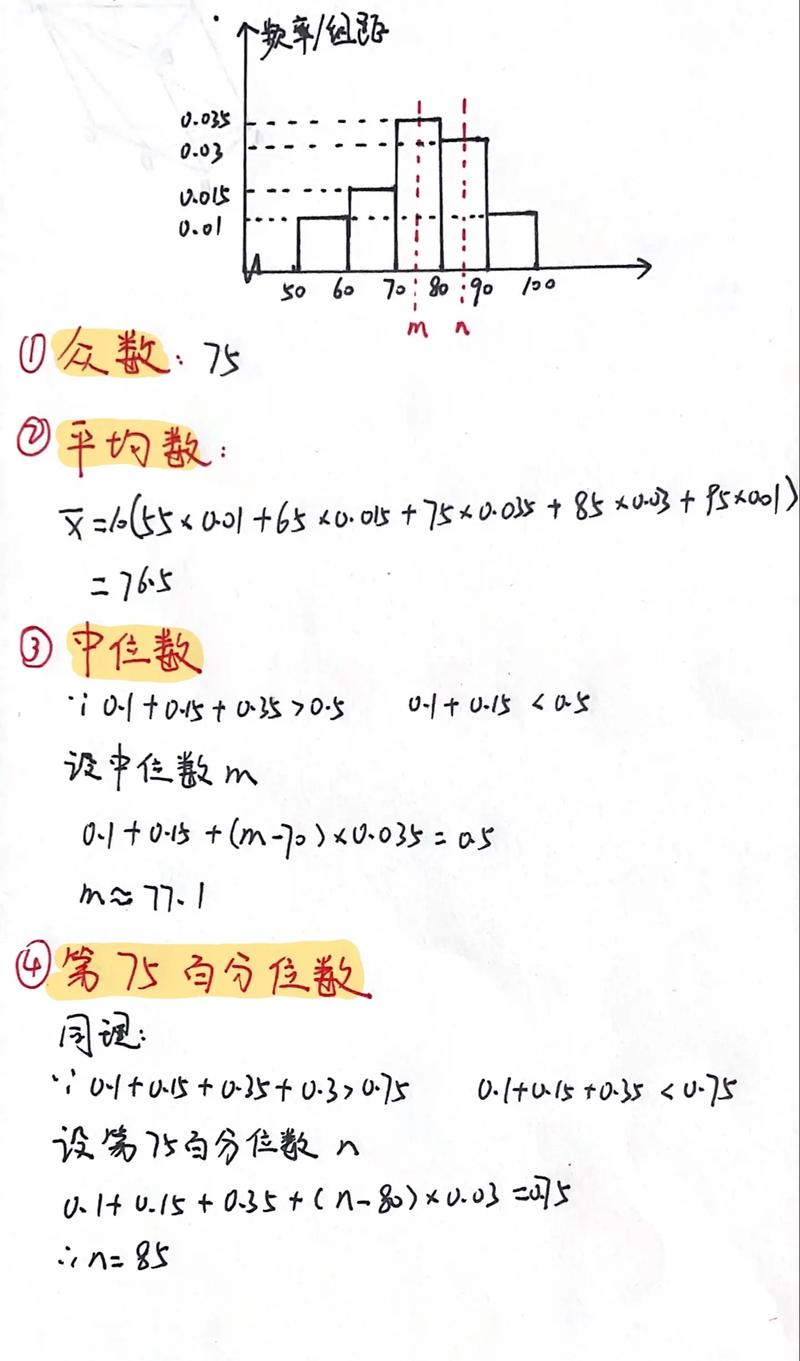 频率/组距
0.035
0.03
0.015
0.01
50 60 70 80 90 100
m n
① 众数：75
② 平均数：
x̅=10(55×0.01+65×0.015+75×0.035+85×0.03+95×0.01)
=76.5
③ 中位数
∵0.1+0.15+0.35>0.5 0.1+0.15<0.5
设中位数m
0.1+0.15+(m-70)×0.035=0.5
m≈77.1
④ 第75百分位数
同理：
∵0.1+0.15+0.35+0.3>0.75 0.1+0.15+0.35<0.75
设第75百分位数n
0.1+0.15+0.35+(n-80)×0.03=0.75
∴n=85